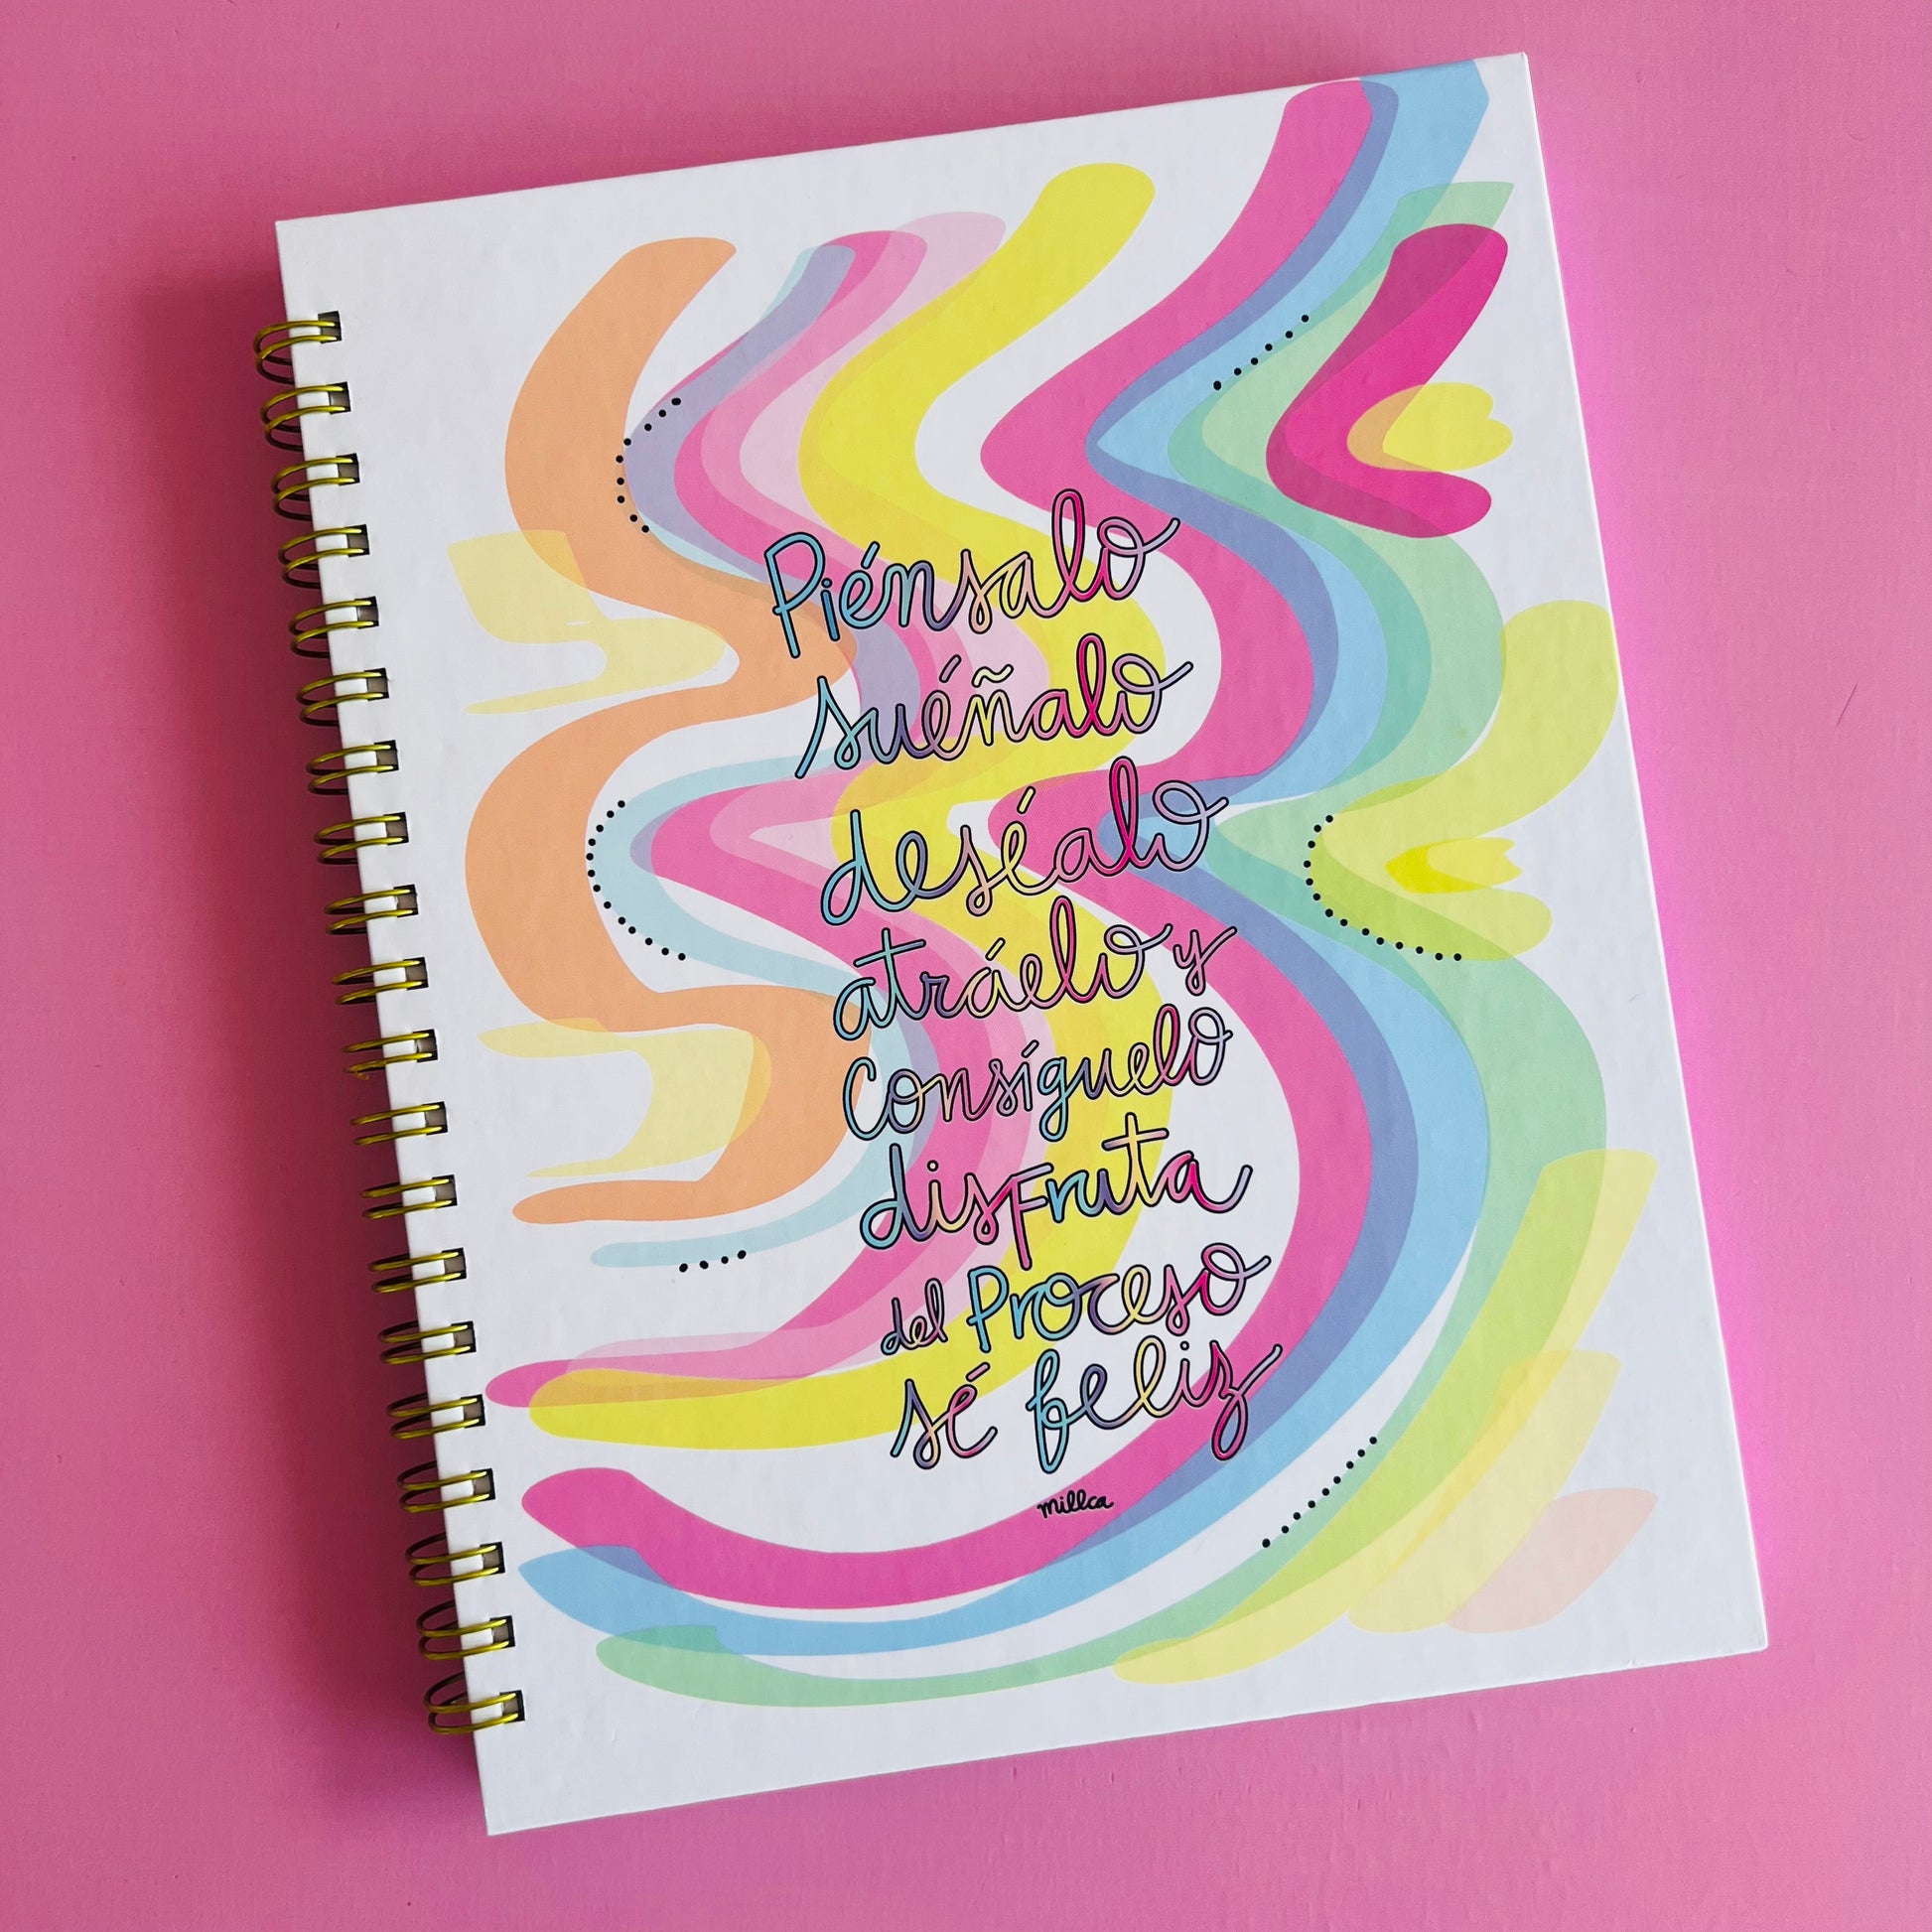 Piénsalo
suéñalo
deséalo
atráelo y
consíguelo
disfruta
del Proceso
sé feliz
millca